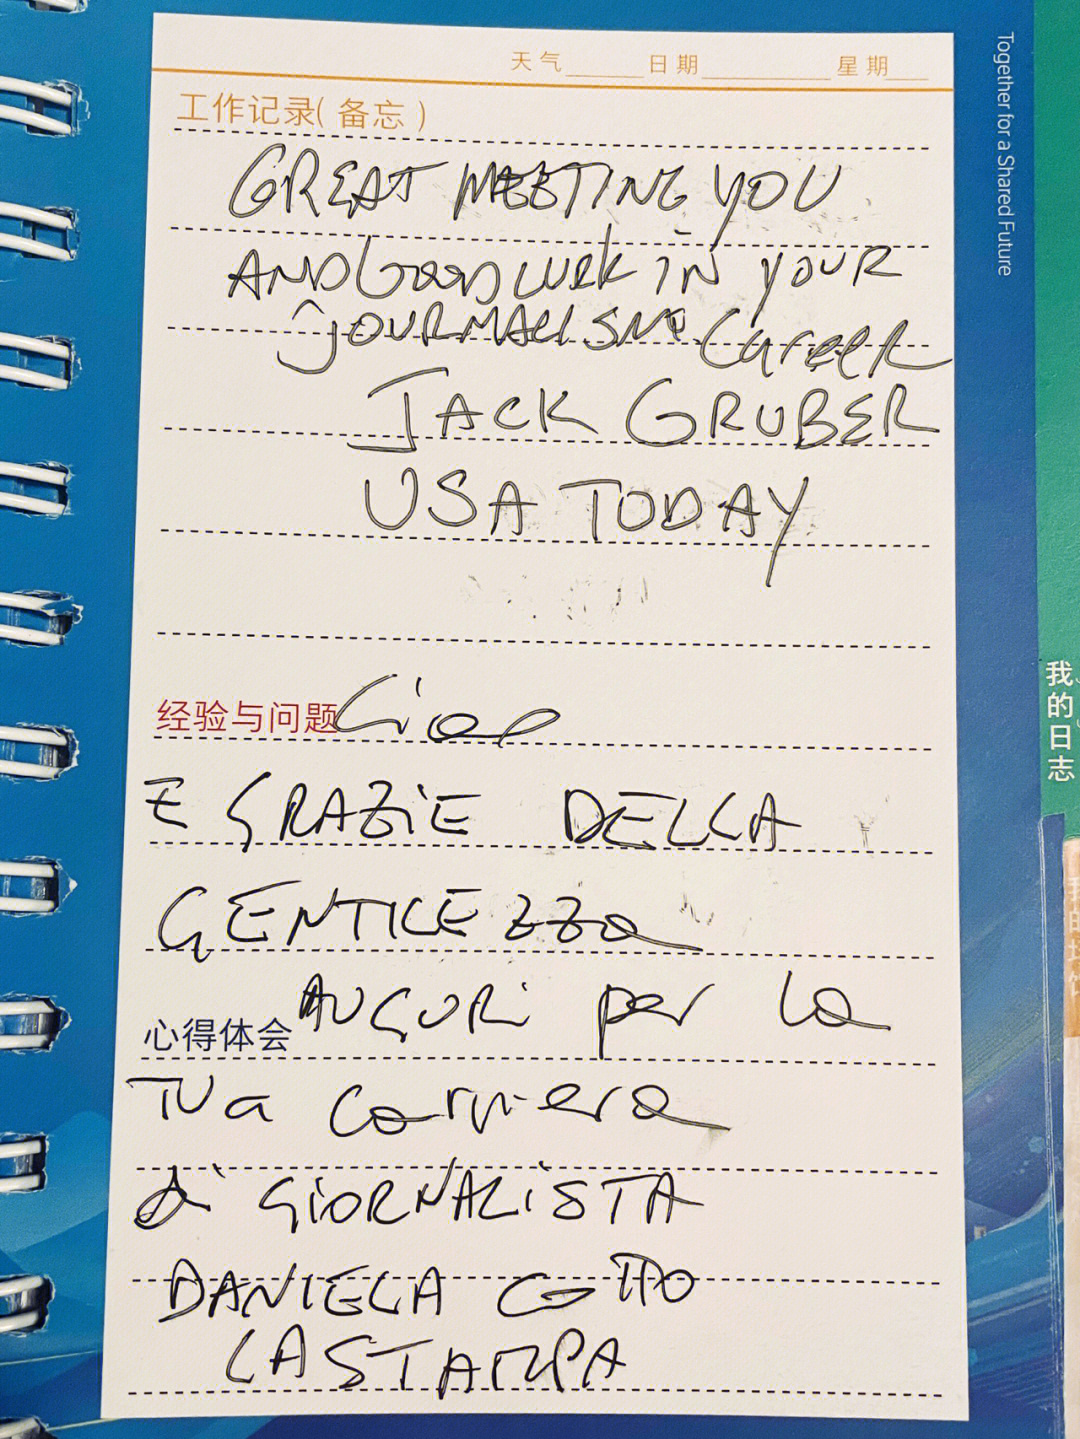 天气 日期 星期
工作记录(备忘)
GREAT MEETING YOU
AND GOOD LUCK IN YOUR
JOURNALISM Career
JACK GRUBER
USA TODAY
经验与问题 Ciao
E GRAZIE DELLA
GENTILEZZa
心得体会 AUGURi per la
TUa carriera
di GiORNALiSTA
DANIELA COTTO
LA STAMPA
Together for a Shared Future
我的日志